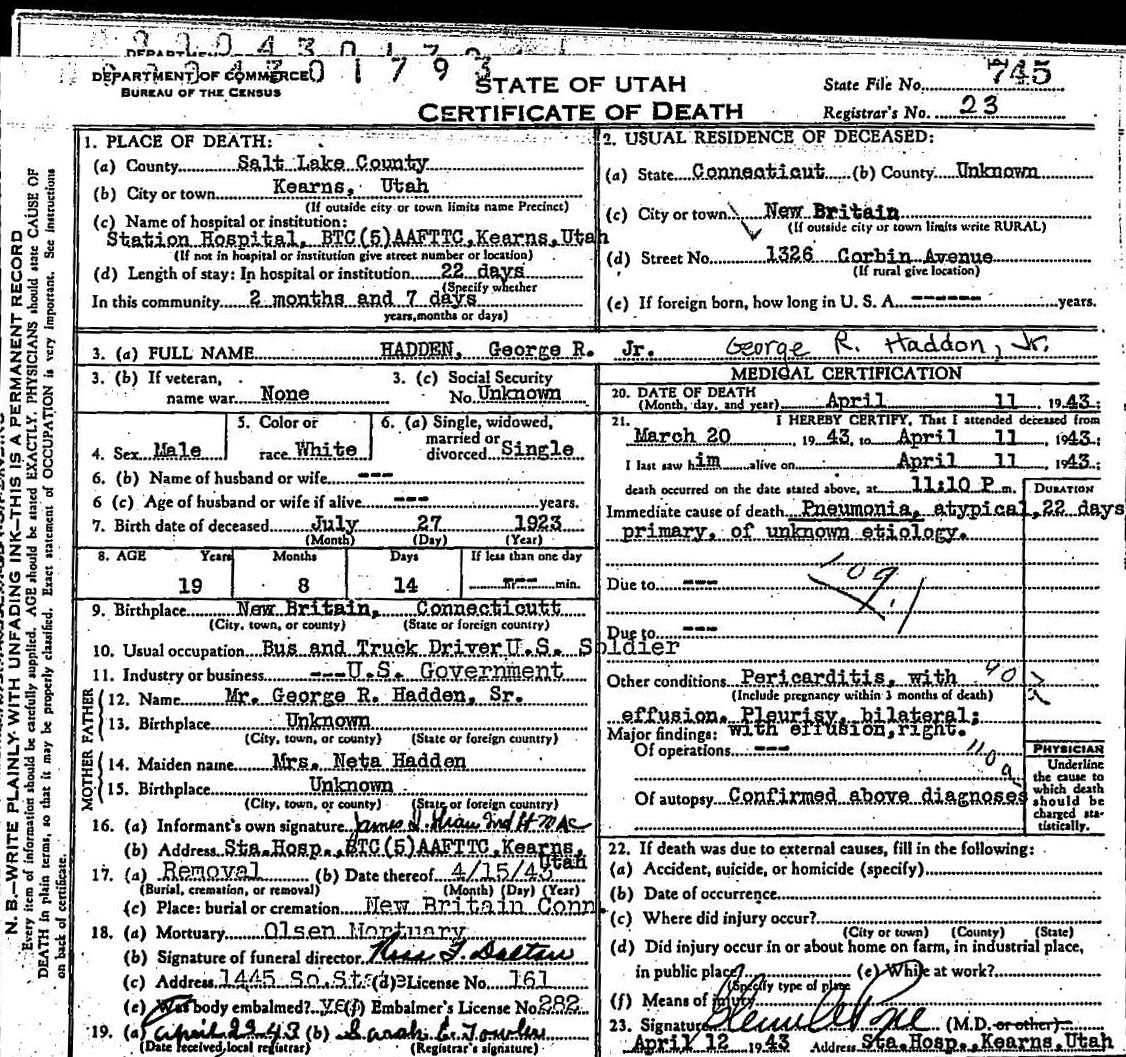 DEPARTMENT OF COMMERCE
BUREAU OF THE CENSUS
STATE OF UTAH
CERTIFICATE OF DEATH
State File No. 745
Registrar's No. 23
N. B.—WRITE PLAINLY WITH UNFADING INK—THIS IS A PERMANENT RECORD
Every item of information should be carefully supplied. AGE should be stated EXACTLY. PHYSICIANS should state CAUSE OF
DEATH in plain terms, so that it may be properly classified. Exact statement of OCCUPATION is very important. See instructions
on back of certificate.
1. PLACE OF DEATH:
(a) County Salt Lake County
(b) City or town Kearns, Utah
(If outside city or town limits name Precinct)
(c) Name of hospital or institution:
Station Hospital, BTC(5)AAFTTC,Kearns,Utah
(If not in hospital or institution give street number or location)
(d) Length of stay: In hospital or institution 22 days
(Specify whether
In this community 2 months and 7 days
years, months or days)
2. USUAL RESIDENCE OF DECEASED:
(a) State Connecticut (b) County Unknown
(c) City or town New Britain
(If outside city or town limits write RURAL)
(d) Street No. 1326 Corbin Avenue
(If rural give location)
(e) If foreign born, how long in U. S. A. ------ years.
3. (a) FULL NAME HADDEN, George R. Jr. George R. Haddon, Jr.
3. (b) If veteran, name war None
3. (c) Social Security No. Unknown
4. Sex Male
5. Color or race White
6. (a) Single, widowed, married or divorced Single
6. (b) Name of husband or wife ---
6 (c) Age of husband or wife if alive --- years.
7. Birth date of deceased July 27 1923
(Month) (Day) (Year)
8. AGE Years Months Days If less than one day
19 8 14 hr. --- min.
9. Birthplace New Britain, Connecticutt
(City, town, or county) (State or foreign country)
10. Usual occupation Bus and Truck Driver U.S. Soldier
11. Industry or business ---U.S. Government
FATHER
12. Name Mr. George R. Hadden, Sr.
13. Birthplace Unknown
(City, town, or county) (State or foreign country)
MOTHER
14. Maiden name Mrs. Neta Hadden
15. Birthplace Unknown
(City, town, or county) (State or foreign country)
16. (a) Informant's own signature James
(b) Address Sta.Hosp.,BTC(5)AAFTTC,Kearns, Utah
17. (a) Removal (b) Date thereof 4/15/43
(Burial, cremation, or removal) (Month) (Day) (Year)
(c) Place: burial or cremation New Britain Conn
18. (a) Mortuary Olsen Mortuary
(b) Signature of funeral director
(c) Address 1445 So. State (d) License No. 161
(e) Was body embalmed? yes (f) Embalmer's License No. 282
19. (a) April 22 43 (b) Sarah E.
(Date received local registrar) (Registrar's signature)
MEDICAL CERTIFICATION
20. DATE OF DEATH
(Month, day, and year) April 11, 1943:
21. I HEREBY CERTIFY, That I attended deceased from
March 20, 1943, to April 11, 1943:
I last saw him alive on April 11, 1943.:
death occurred on the date stated above, at 11:10 P m.
DURATION
Immediate cause of death Pneumonia, atypical, 22 days
primary, of unknown etiology.
Due to ---
109.1
Due to ---
Other conditions Pericarditis, with 90
(Include pregnancy within 3 months of death)
effusion. Pleurisy, bilateral;
Major findings: with effusion, right.
Of operations --- 110a
Of autopsy Confirmed above diagnoses
PHYSICIAN
Underline
the cause to
which death
should be
charged sta-
tistically.
22. If death was due to external causes, fill in the following:
(a) Accident, suicide, or homicide (specify)
(b) Date of occurrence
(c) Where did injury occur?
(City or town) (County) (State)
(d) Did injury occur in or about home on farm, in industrial place,
in public place? (e) While at work?
(Specify type of place)
(f) Means of injury
23. Signature (M.D. or other)
April 12 1943 Address Sta.Hosp., Kearns, Utah